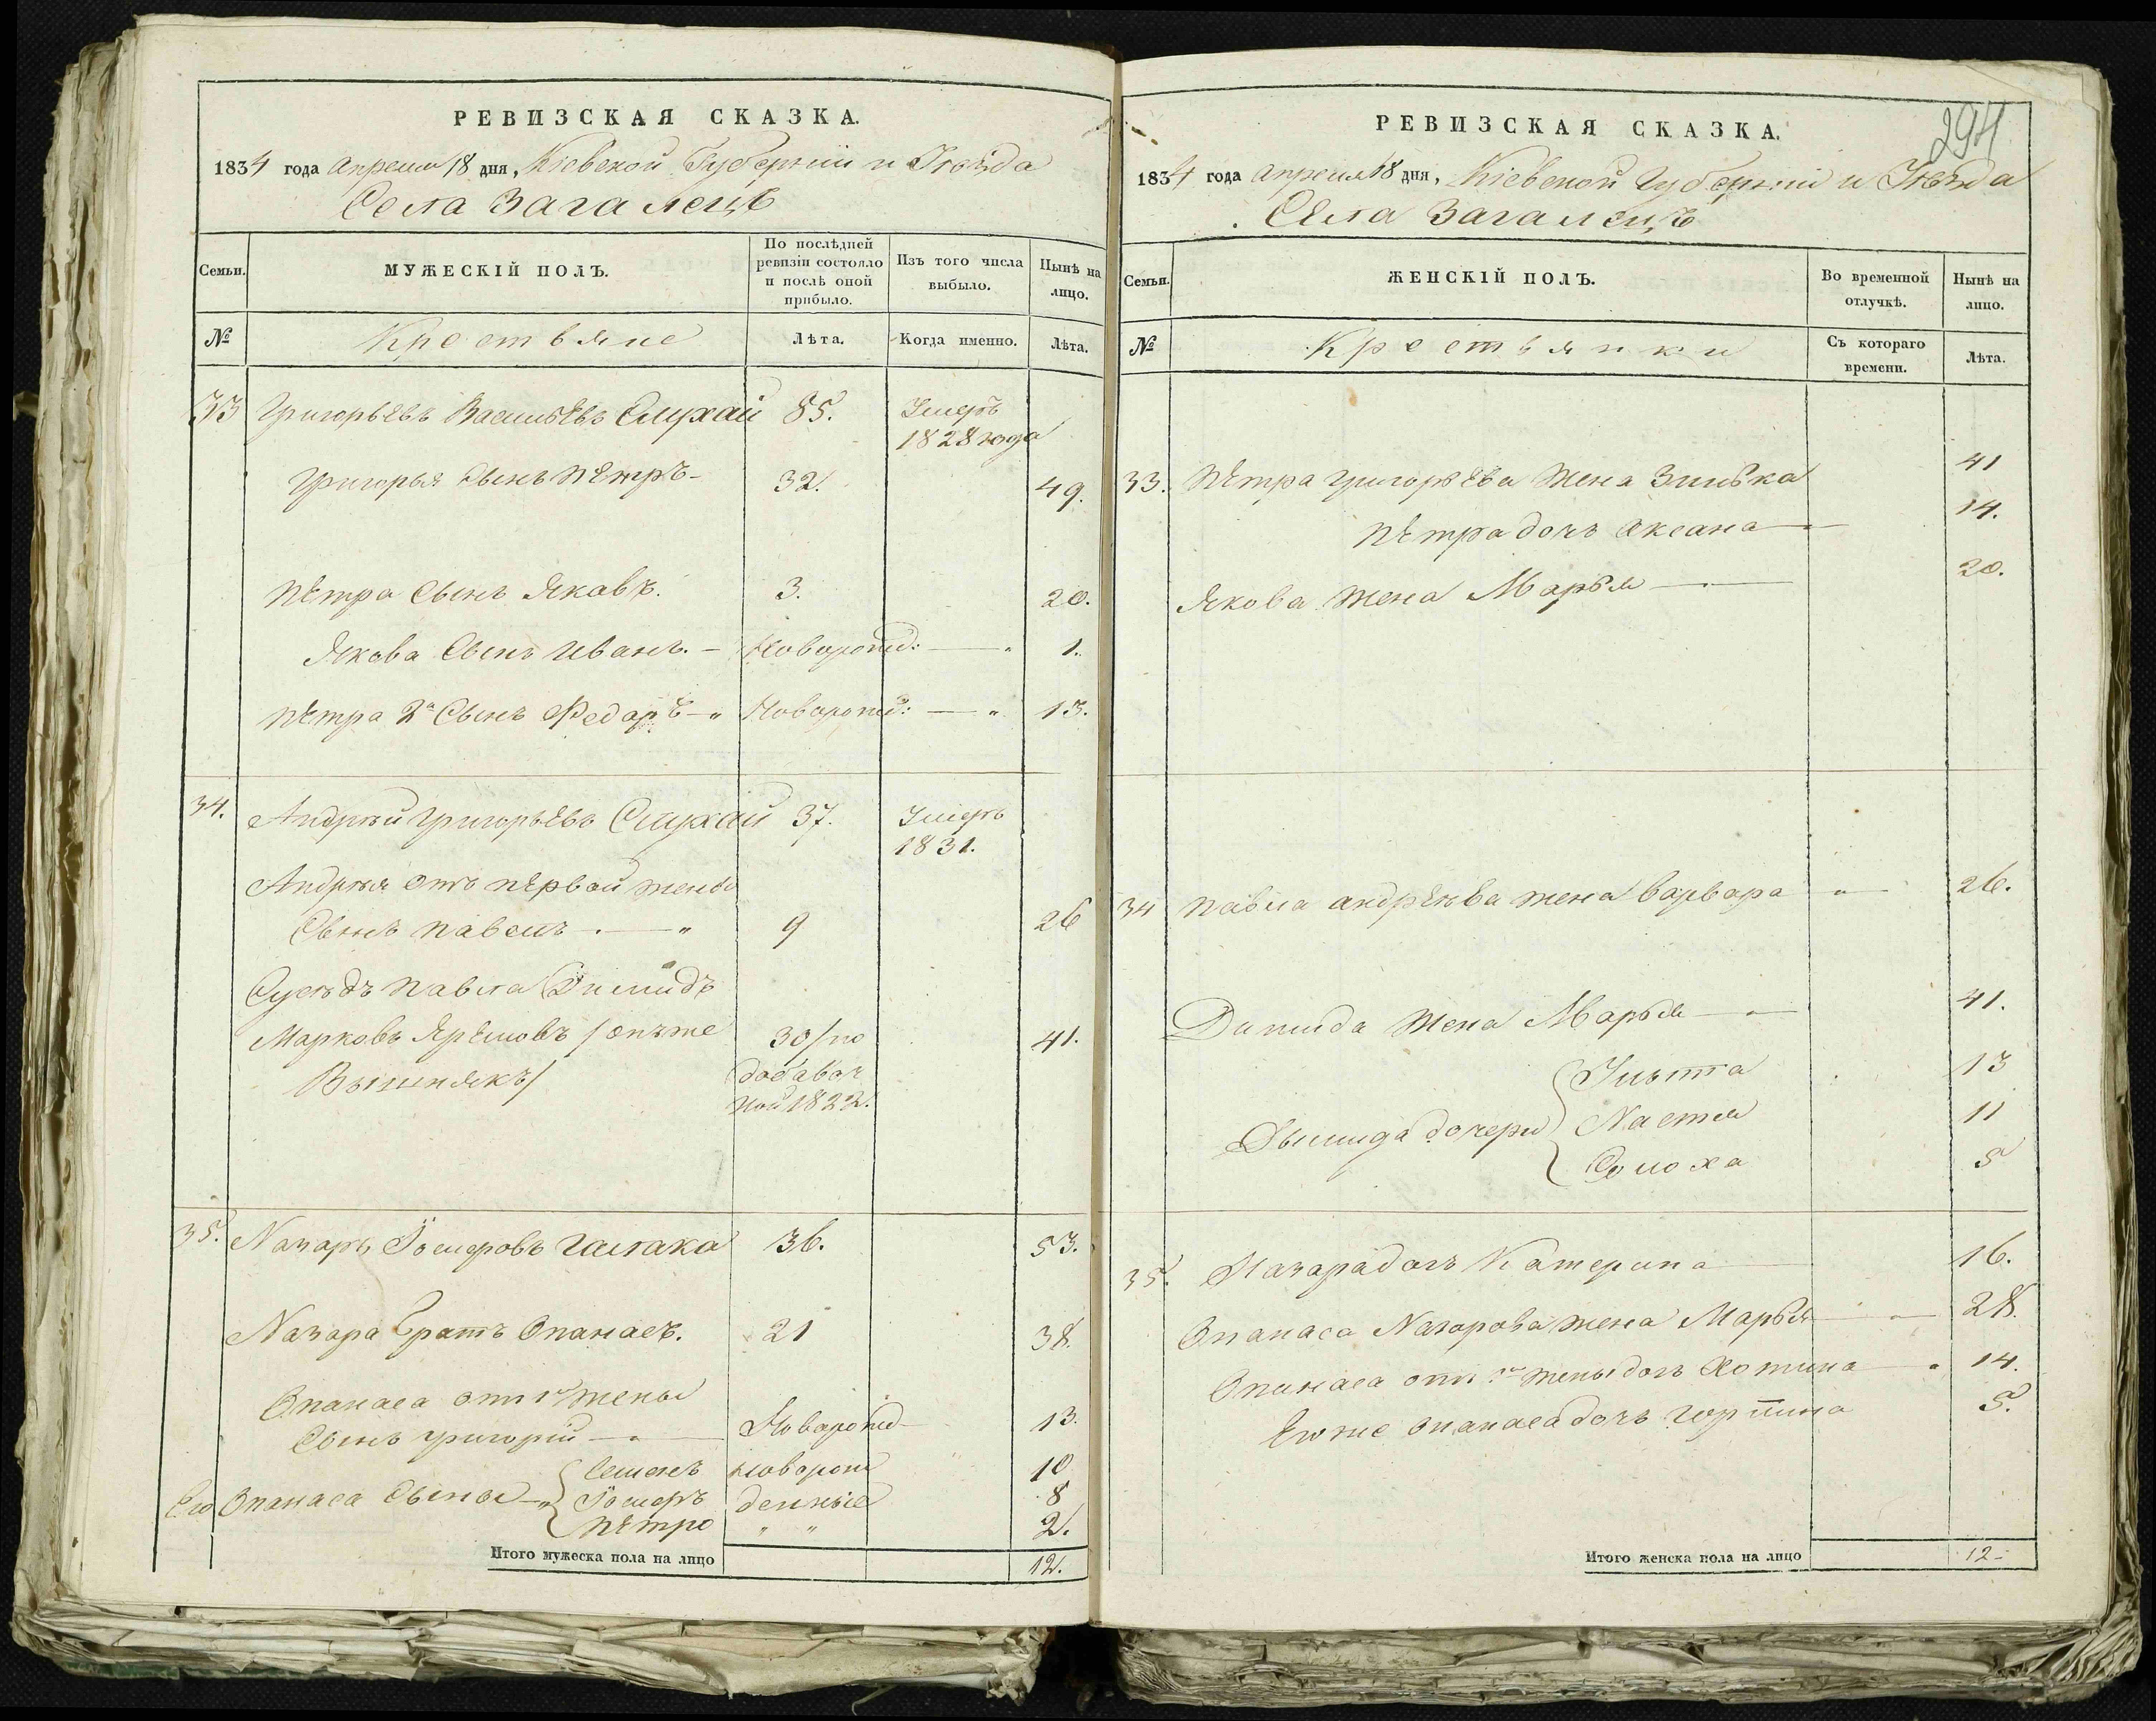 РЕВИЗСКАЯ СКАЗКА.
1834 года Апреля 18 дня, Кіевской Губерніи и Уѣзда
Села Загалецъ
Семьи.
МУЖЕСКІЙ ПОЛЪ.
По послѣдней ревизіи состояло и послѣ оной прибыло.
Изъ того числа выбыло.
Нынѣ на лицо.
№
Крестьяне
Лѣта.
Когда именно.
Лѣта.
33 Григорьевъ Васильевъ Слухай 85. Умеръ
1828 года
Григорья Сынъ Петръ - 32. 49.
Петра Сынъ Яковъ. 3. 20.
Якова Сынъ Иванъ. -Новорожд: — " 1.
Петра 2й Сынъ Федаръ - " Новорожд: — " 13.
34. Андрей Григорьевъ Слухай 37. Умеръ
1831.
Андрея отъ первой жены
Сынъ Павелъ . — " 9 26
Сусѣдъ Павла Димидъ
Марковъ Яремовъ / онъже 30/по 41.
Вышнякъ/ добавоч
ной 1822.
35. Назаръ Гостеровъ Галака 36. 53.
Назара Братъ Опанасъ. 21 38.
Опанаса отъ 1й жены
Сынъ Григорій — Новорожд 13.
Его Опанаса Сыны Семенъ новорож 10
денные 8
Петро " " 2.
Итого мужеска пола на лицо 12.
294
РЕВИЗСКАЯ СКАЗКА.
1834 года Апреля 18 дня, Кіевской Губерніи и Уѣзда
Села Загалецъ
Семьи.
ЖЕНСКІЙ ПОЛЪ.
Во временной отлучкѣ.
Нынѣ на лицо.
№
Крестьянки
Съ котораго времени.
Лѣта.
33. Петра Григорьева Жена Зинька 41
Петра дочь Аксана 14.
Якова Жена Марья — 20.
34 Павла Андреева жена Варвара " 26.
Димида Жена Марья — 41.
Ульяна 13
Дымида дочери Настя 11
Солоха 5
35. Назара дочь Катерина 16.
Опанаса Назарова жена Марья — 28.
Опанаса отъ 1й жены дочь Хотина 14.
Его же Опанаса дочь Горпина 5.
Итого женска пола на лицо 12 -